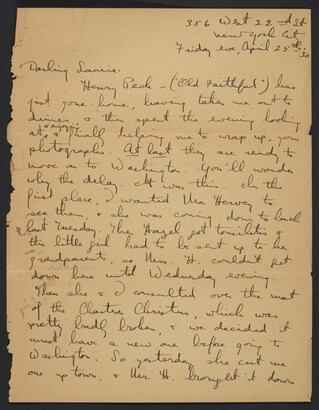 356 West 22nd St
New York City
Friday eve, April 25th, 30
Darling Laurie:
Henry Peck - ("Old Faithful") has
just gone home, having taken me out to
dinner & then spent the evening looking
at, & finally helping me to wrap up, your
enjoying
photographs. At last they are ready to
move on to Washington. You'll wonder
why the delay. It was this. In the
first place, I wanted Mrs Hervey to
see them, & she was coming down to lunch
last Tuesday. Then Hazel got tonsilitis &
the little girl had to be sent up to her
grandparents, so Mrs. H. couldn't get
down here until Wednesday evening.
Then she & I consulted over the mat
of the Chartres Christus, which was
pretty badly broken, & we decided it
must have a new one before going to
Washington. So yesterday she cut me
one up town, & Mrs. H. brought it down